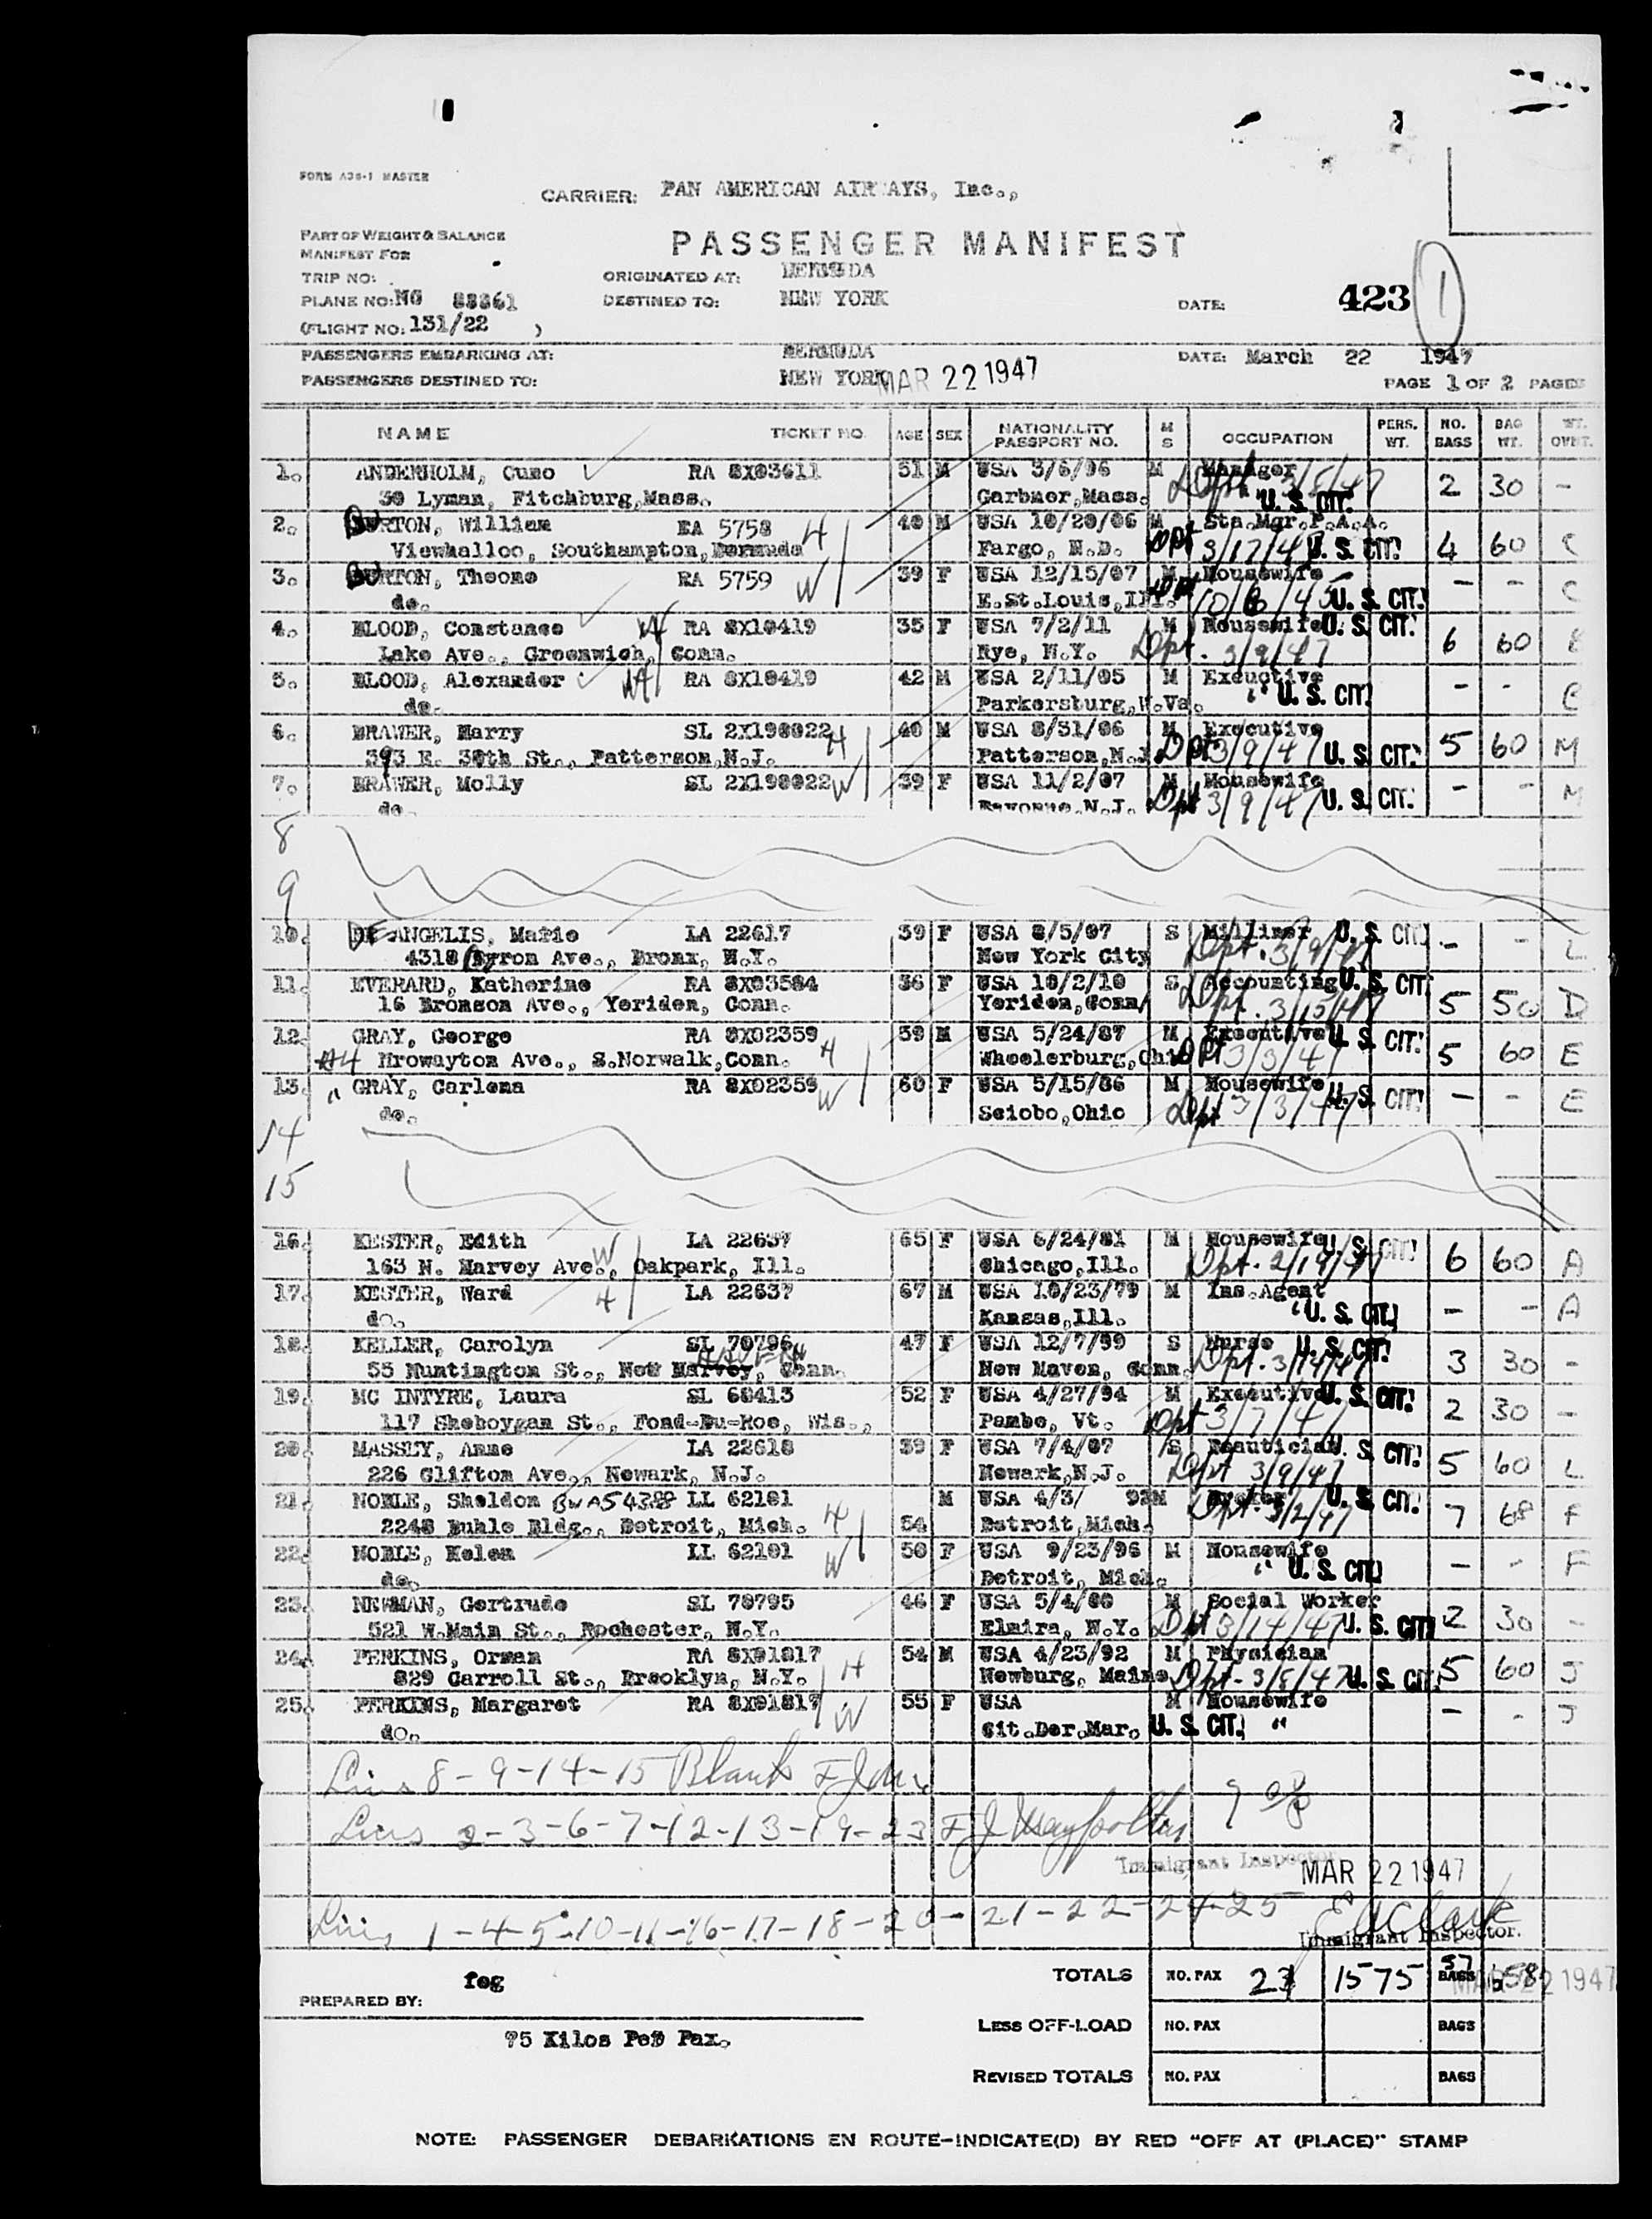 FORM A36-1 MASTER
CARRIER: PAN AMERICAN AIRWAYS, Inc.,
PART OF WEIGHT & BALANCE
MANIFEST FOR
PASSENGER MANIFEST
TRIP NO: ORIGINATED AT: BERMUDA
PLANE NO: NC 88861 DESTINED TO: NEW YORK DATE: 423 1
(FLIGHT NO: 131/22 )
PASSENGERS EMBARKING AT: BERMUDA DATE: March 22 1947
PASSENGERS DESTINED TO: NEW YORK MAR 22 1947 PAGE 1 OF 2 PAGES
NAME TICKET NO. AGE SEX NATIONALITY PASSPORT NO. M S OCCUPATION PERS. WT. NO. BAGS BAG WT. WT. OVWT.
1. ANDERHOLM, Cumo RA 8X03611 51 M USA 3/6/96 M Manager 2 30 -
50 Lyman, Fitchburg, Mass. Garbner, Mass. Dpt. 3/8/47 U. S. CIT.
2. BURTON, William RA 5758 H 40 M USA 10/20/06 M Sta.Mgr.P.A.A. 4 60 C
Viewhalloo, Southampton, Bermuda Fargo, N.D. Dpt 3/17/47 U. S. CIT.
3. BURTON, Theone RA 5759 W 39 F USA 12/15/07 M Housewife - - C
do. E.St.Louis, Ill. Dpt 10/6/45 U. S. CIT.
4. BLOOD, Constance W RA 8X10419 35 F USA 7/2/11 M Housewife U. S. CIT. 6 60 B
Lake Ave., Greenwich, Conn. Rye, N.Y. Dpt. 3/9/47
5. BLOOD, Alexander H RA 8X10419 42 M USA 2/11/05 M Exductive - - B
do. Parkersburg, W.Va. " U. S. CIT.
6. BRAWER, Harry SL 2X190022 H 40 M USA 8/31/06 M Executive 5 60 M
393 E. 38th St., Patterson, N.J. Patterson, N.J. Dpt 3/9/47 U. S. CIT.
7. BRAWER, Molly SL 2X190022 W 39 F USA 11/2/07 M Housewife - - M
do. Bayonne, N.J. Dpt 3/9/47 U. S. CIT.
8
9
10. DE ANGELIS, Marie LA 22617 39 F USA 8/5/07 S Milliner U. S. CIT. - - L
4318 Byron Ave., Bronx, N.Y. New York City Dpt. 3/9/47
11. EVERARD, Katherine RA 8X03584 36 F USA 10/2/10 S Accounting U. S. CIT. 5 50 D
16 Bronson Ave., Yeriden, Conn. Yeriden, Conn/ Dpt. 3/15/47
12. GRAY, George RA 8X02359 59 M USA 5/24/87 M Executive U. S. CIT. 5 60 E
44 Hrowayton Ave., S.Norwalk, Conn. H Wheelerburg, Ohio Dpt 3/3/47
13. " GRAY, Carlena RA 8X02359 W 60 F USA 5/15/86 M Housewife U. S. CIT. - - E
do. Sciobo, Ohio Dpt 3/3/47
14
15
16. KESTER, Edith W LA 22637 65 F USA 6/24/81 M Housewife U. S. CIT. 6 60 A
163 N. Harvey Ave., Oakpark, Ill. Chicago, Ill. Dpt. 2/19/47
17. KESTER, Ward H LA 22637 67 M USA 10/23/79 M Ins.Agent - - A
do. Kansas, Ill. " U. S. CIT.
18. KELLER, Carolyn SL 70796 47 F USA 12/7/99 S Nurse U. S. CIT. 3 30 -
55 Huntington St., New Harvey, Conn. HAVEN New Haven, Conn. Dpt. 3/14/47
19. MC INTYRE, Laura SL 60413 52 F USA 4/27/94 M Executive U. S. CIT. 2 30 -
117 Sheboygan St., Fond-Du-Hoe, Wis., Pambe, Vt. Dpt 3/7/47
20. MASSEY, Anne LA 22618 39 F USA 7/4/07 S Beautician U. S. CIT. 5 60 L
226 Clifton Ave., Newark, N.J. Newark, N.J. Dpt 3/9/47
21. NOBLE, Sheldon LL 62101 M USA 4/3/ 92 M Broker U. S. CIT. 7 68 F
2248 Buhle Bldg., Detroit, Mich. H 54 Detroit, Mich. Dpt. 3/2/47
22. NOBLE, Helen LL 62101 W 50 F USA 9/23/96 M Housewife - - F
do. Detroit, Mich. " U. S. CIT.
23. NEWMAN, Gertrude SL 70795 46 F USA 5/4/00 M Social Worker 2 30 -
521 W.Main St., Rochester, N.Y. Elmira, N.Y. Dpt 3/14/47 U. S. CIT.
24. PERKINS, Orman RA 8X01817 54 M USA 4/23/92 M Physician 5 60 J
829 Carroll St., Brooklyn, N.Y. H Newburg, Maine Dpt. 3/8/47 U. S. CIT.
25. PERKINS, Margaret RA 8X01817 W 55 F USA M Housewife - - J
do. Cit.Der.Mar. U. S. CIT. "
Lines 8-9-14-15 Blank
Lines 2-3-6-7-12-13-19-23
Immigrant Inspector MAR 22 1947
Lines 1-4-5-10-11-16-17-18-20-21-22-24-25 E A Clark
Immigrant Inspector.
feg TOTALS NO. PAX 21 1575 BAGS 57 658 MAR 22 1947
PREPARED BY:
75 Kilos Per Pax. LESS OFF-LOAD NO. PAX BAGS
REVISED TOTALS NO. PAX BAGS
NOTE: PASSENGER DEBARKATIONS EN ROUTE-INDICATE(D) BY RED "OFF AT (PLACE)" STAMP